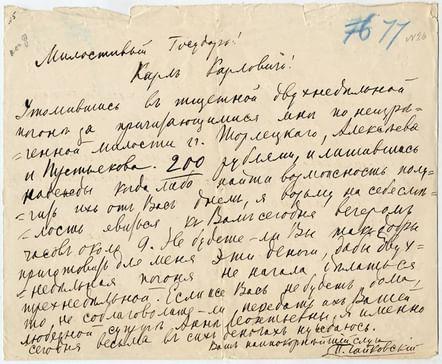 76 77
№ 26
Милостивый Государь!
Карлъ Карловичъ!
Утомившись въ тщетной двухнедѣльной
погонѣ за причитающимися мнѣ по
милости гг. Торлецкаго, Алексѣева
и 200 рублями, и лишившись
надежды когда либо найти возможность полу-
чить ихъ отъ Васъ днемъ, я возьму на себя смѣ-
лость явиться къ Вамъ сегодня вечеромъ
часовъ около 9. Не будете-ли Вы такъ добры
приготовить для меня эти деньги, дабы двух-
недѣльная погоня не начала дѣлаться
трехнедѣльной. Если же Васъ не будетъ дома,
то не соблаговолите-ли передать ихъ Вашей
любезной супругѣ Аннѣ Леонтьевнѣ; я именно
сегодня весьма въ сихъ деньгахъ нуждаюсь.
Вашъ наипокорнѣйшій слуга
П. Чайковскій